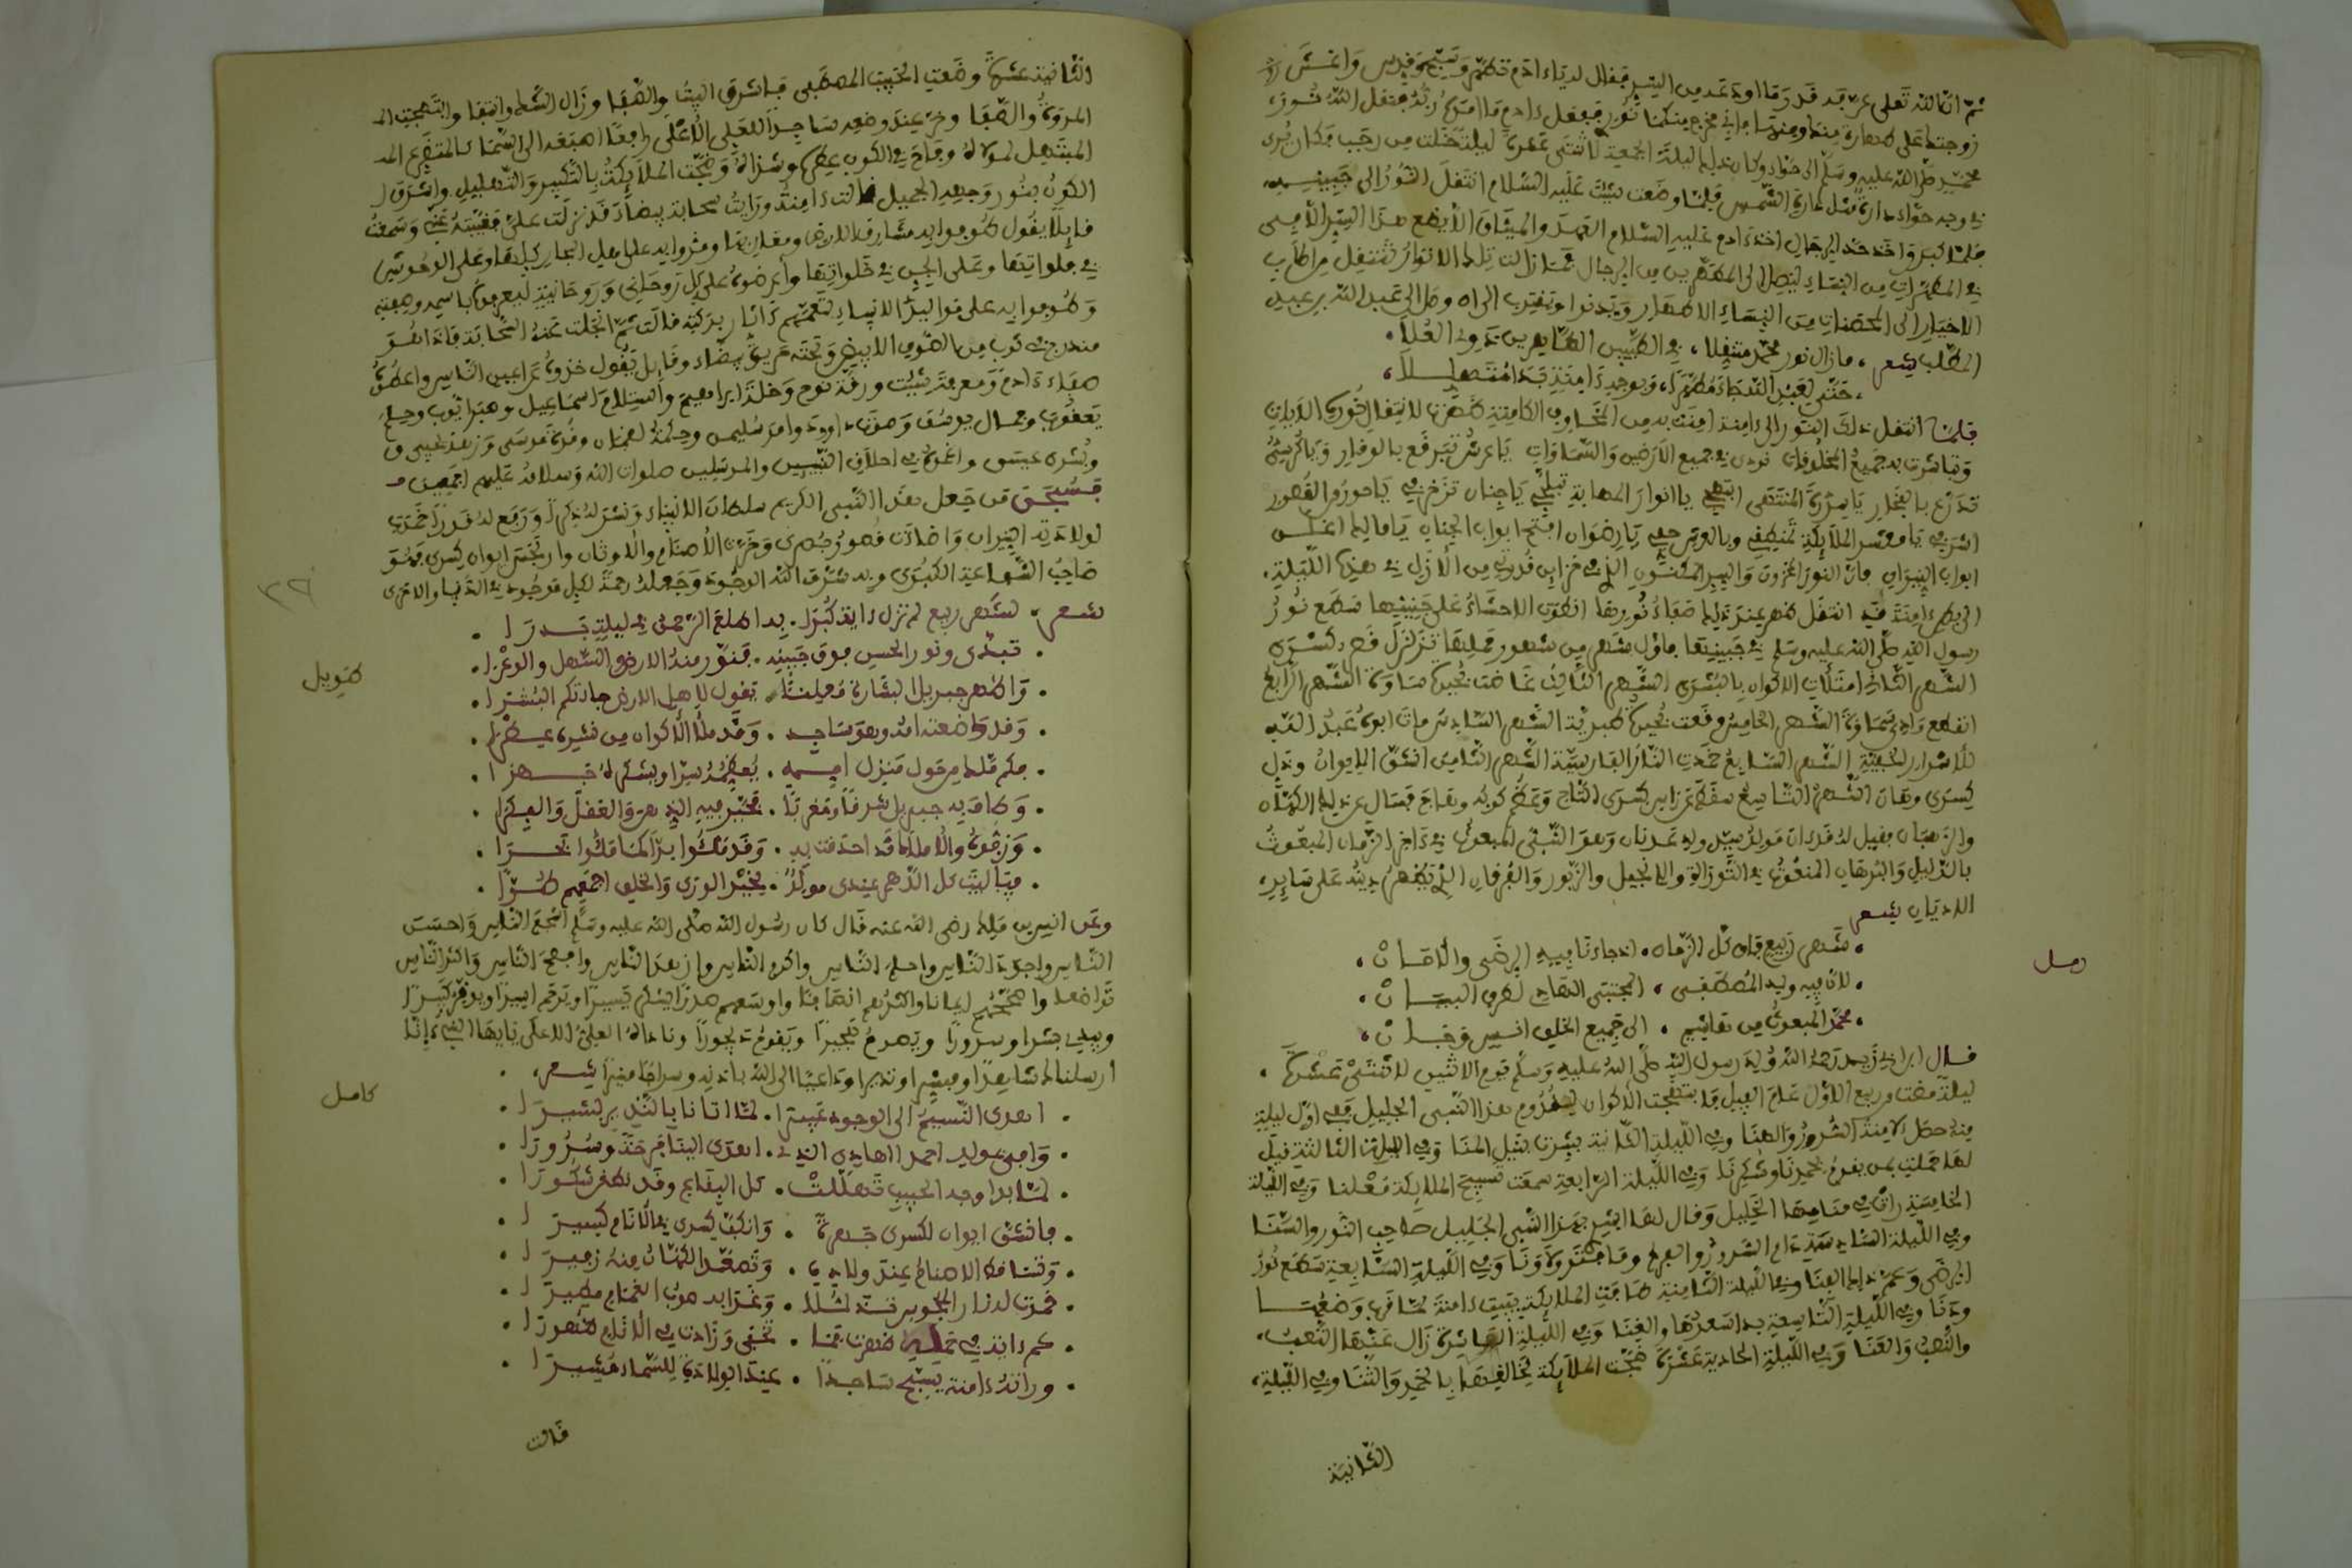 ثم ان الله تعلى عز قد قدر وما اودعه من السر فقال له يا ءادم تطهر وسبح وقدس واغش
زوجتك على طهارة منك ومنها فإني مخرج منكما نوري ففعل ءادم ما امره ربه فنقل الله نور
محمد صلى الله عليه وسلم الى حواء وكان ذلك ليلة الجمعة لاثنتي عشرة ليلة خلت من رجب فكان يرى
في وجه حواء دارة مثل دارة الشمس فلما وضعت شيث عليه السلام انتقل النور الى جبينه
فلما كبر واخذ حد الرجال اخذ ءادم عليه السلام العهد والميثاق الا يضع هذا السر الا في
في المطهرات من النساء ليصل الى المطهرين من الرجال فما زالت تلك الانوار تنتقل من اطايب
الاخيار الى المحصنات من النساء الاطهار وتدنوا وتقترب الى ان وصل الى عبد الله بن عبد
المطلب شعر ، ما زال نور محمد متنقلا ، في الطيبين الطاهرين ذوي العلا ،
، حتى لعبد الله جاء مطهرا ، وبوجه ءامنة بدا متهللا ،
فلما انتقل ذلك النور الى ءامنة امنت به من المخاوف الكامنة
وتباشرت به جميع المخلوقات نودي في جميع الارضين والسماوات يا عرش تبرقع بالوقار ويا كرسي
تدرع بالفخار يا سدرة المنتهى ابتهجي يا انوار المهابة تبلجي يا جنان تزخرفي يا حور من القصور
اشرفي يا معشر الملائكة تمنطقي وبالعرش حفي يا رضوان افتح ابواب الجنان يا مالك اغلق
ابواب النيران فان النور المخزون والسر المكنون الذي في خزاين قدرتي من الازل في هذه الليلة
الى بطن ءامنة فيه انتقل فعند ذلك ضياء نورها انطوت الاحشاء على جنينها سطع نور
رسول الله صلى الله عليه وسلم في جبينها فاول شهر من شهور حملها تزلزل قصر كسرى
الشهر الثاني امتلات الاكوان بالبشرى الشهر الثالث غاضت بحيرة ساوة الشهر الرابع
انقطع وادي سماوة الشهر الخامس وقعت بحيرة طبرية الشهر السادس مات ابوه عبد الله
للاسرار الخفية الشهر السابع خمدت النار الفارسية الشهر الثامن انشق الايوان وذل
كسرى وهان الشهر التاسع سقط عن راس كسرى التاج فسال عن ذلك الكهان
والرهبان فقيل له قد ان مولد سيد ولد عدنان وهو النبي المبعوث في ءاخر الزمان المبعوث
بالدليل والبرهان المنعوت في التوراة والانجيل والزبور والفرقان الذي يظهر دينه على ساير
الاديان شعر
، شهر ربيع فاق كل الزمان ، اذ جاءنا فيه الرضى والامان ،
، لان فيه ولد المصطفى ، المجتبى الهادي لطرق البيان ،
، محمد المبعوث من هاشم ، الى جميع الخلق انس وجان ،
رمل
قال ابو زيد رحمه الله ولد رسول الله صلى الله عليه وسلم يوم الاثنين لاثنتي عشرة
ليلة مضت من ربيع الاول عام الفيل فابتهجت الاكوان بقدوم هذا النبي الجليل ففي اول ليلة
منه حصل لامنة السرور والهنا وفي الليلة الثانية بشرت بنيل المنا وفي الليلة الثالثة قيل
لها حملت بمن يقوم بحمدنا وشكرنا وفي الليلة الرابعة سمعت تسبيح الملائكة معلنا وفي الليلة
الخامسة رات في منامها الخليل وقال لها ابشري بهذا النبي الجليل صاحب النور والسنا
وفي الليلة السادسة دام السرور والفرح وما فترولا ونا وفي الليلة السابعة سطع نور
الرضى وعم ذلك الفنا وفي الليلة الثامنة طافت الملائكة ببيت ءامنة لما قرب وضعها
ودنا وفي الليلة التاسعة بدا سعدها والغنا وفي الليلة العاشرة زال عنها التعب
والنصب والعنا وفي الليلة الحادية عشرة ضجت الملائكة لخالقها بالحمد والثنا وفي الليلة
الثانية
الثانية عشرة وضعت الحبيب المصطفى فاشرق البيت والصفا وزال الشك وانتفا وابتهجت
المروة والصفا وخر عند وضعه ساجدا للعلي الاعلى رافعا اصبعه الى السماء كالمتضرع
المبتهل لمولاه وفاح في الكون عطره وشذاه وضجت الملائكة بالتكبير والتهليل واشرق
الكون بنور وجهه الجميل قالت ءامنة ورايت سحابة بيضاء قد نزلت علي فغيبته عني وسمعت
قائلا يقول طوفوا به مشارق الارض ومغاربها ومروا به على اهل البحار كلها وعلى الوحوش
في فلواتها وعلى الجن في خلواتها واعرضوه على كل روحاني وروحانية ليعرفوه باسمه وصفته
وطوفوا به على مواليد الانبياء لتعمهم ءاثار بركته قالت ثم انجلت عنه السحابة فاذا هو
مندرج في ثوب من الصوف الابيض وتحته حريرة بيضاء وقايل يقول خذوه عن اعين الناس واعطوه
صفاء ءادم ومعرفة شيث ورقة نوح وخلة ابراهيم واستسلام اسماعيل وصبر ايوب وحلم
يعقوب وجمال يوسف وصوت داوود وامر سليمن وحكمة لقمان وقوة موسى وزهد يحيى
وبشرى عيسى واغمروه في اخلاق النبيين والمرسلين صلوات الله وسلامه عليهم اجمعين
فسبحان من جعل هذا النبي الكريم سلطان الانبياء ونشر له ذكرا ورفع له قدرا خمدت
لولادته النيران واضاءت قصور بصرى وخرت الاصنام والاوثان وارتجس ايوان كسرى فهو
صاحب الشفاعة الكبرى وبه شرف الله الوجود وجعله رحمة لكل موجود في الدنيا والاخرى
٢٩
شعر ، لشهر ربيع لم تزل ءاية كبرا ، بدا طلعة الرحمن في ليلة بدرا ،
طويل
، تبدى ونور الحسن فوق جبينه ، فنور منه الارض والسهل والوعرا ،
، واظهر جبريل البشارة معلنا ، يقول لاهل الارض جاءتكم البشرا ،
، وقد وضعته امه وهو ساجد ، وقد ملا الاكوان من نشره عطرا ،
، فكم ملك من حول منزل امه ، يعظمه سرا ويشكره جهرا ،
، وطاف به جبريل شرقا ومغربا ، تحير فيه الذهن والعقل والفكرا ،
، وزفوه والاملاك قد احدقت به ، وقد سلكوا برا كما سلكوا بحرا ،
، فيا ليت كل الدهر عندي مولد ، بخير الورى والخلق اجمعهم طرا ،
وعن انس بن ملك رضي الله عنه قال كان رسول الله صلى الله عليه وسلم اشجع الناس واحسن
الناس واجود الناس واحلم الناس واكرم الناس وازهد الناس وافصح الناس واكثر الناس
تواضعا واصحهم ايمانا واكثرهم انصافا واوسعهم صدرا
ويبدي بشرا وسرورا ويقوم ديجورا وناداه العلي الاعلى يايها النبي إنا
ارسلنك شاهدا ومبشرا ونذيرا وداعيا الى الله باذنه وسراجا منيرا شعر ،
كامل
، اهدى النسيم الى الوجود عبيرا ، لما اتانا بالنذير بشيرا ،
، وافى بمولد احمد الهادي الذي ، اهدى الينا فرحة وسرورا ،
، لما بدا وجه الحبيب تهللت ، كل البقاع وقد شكورا ،
، فانشق ايوان لكسرى جهرة ، وانكب كسرى في الانام كسيرا ،
، وتساقط الاصنام عند ولادة ، وتصعد الكهان منه زفيرا ،
، خمدت لدنا نار المجوس ، وغدا به صوب الغمام مطيرا ،
، كم ءاية في حمله ظهرت فما ، تخفى وزادت في الانام ظهورا ،
، وراته ءامنة يسبح ساجدا ، عند الولادة للسماء مشيرا ،
قالت